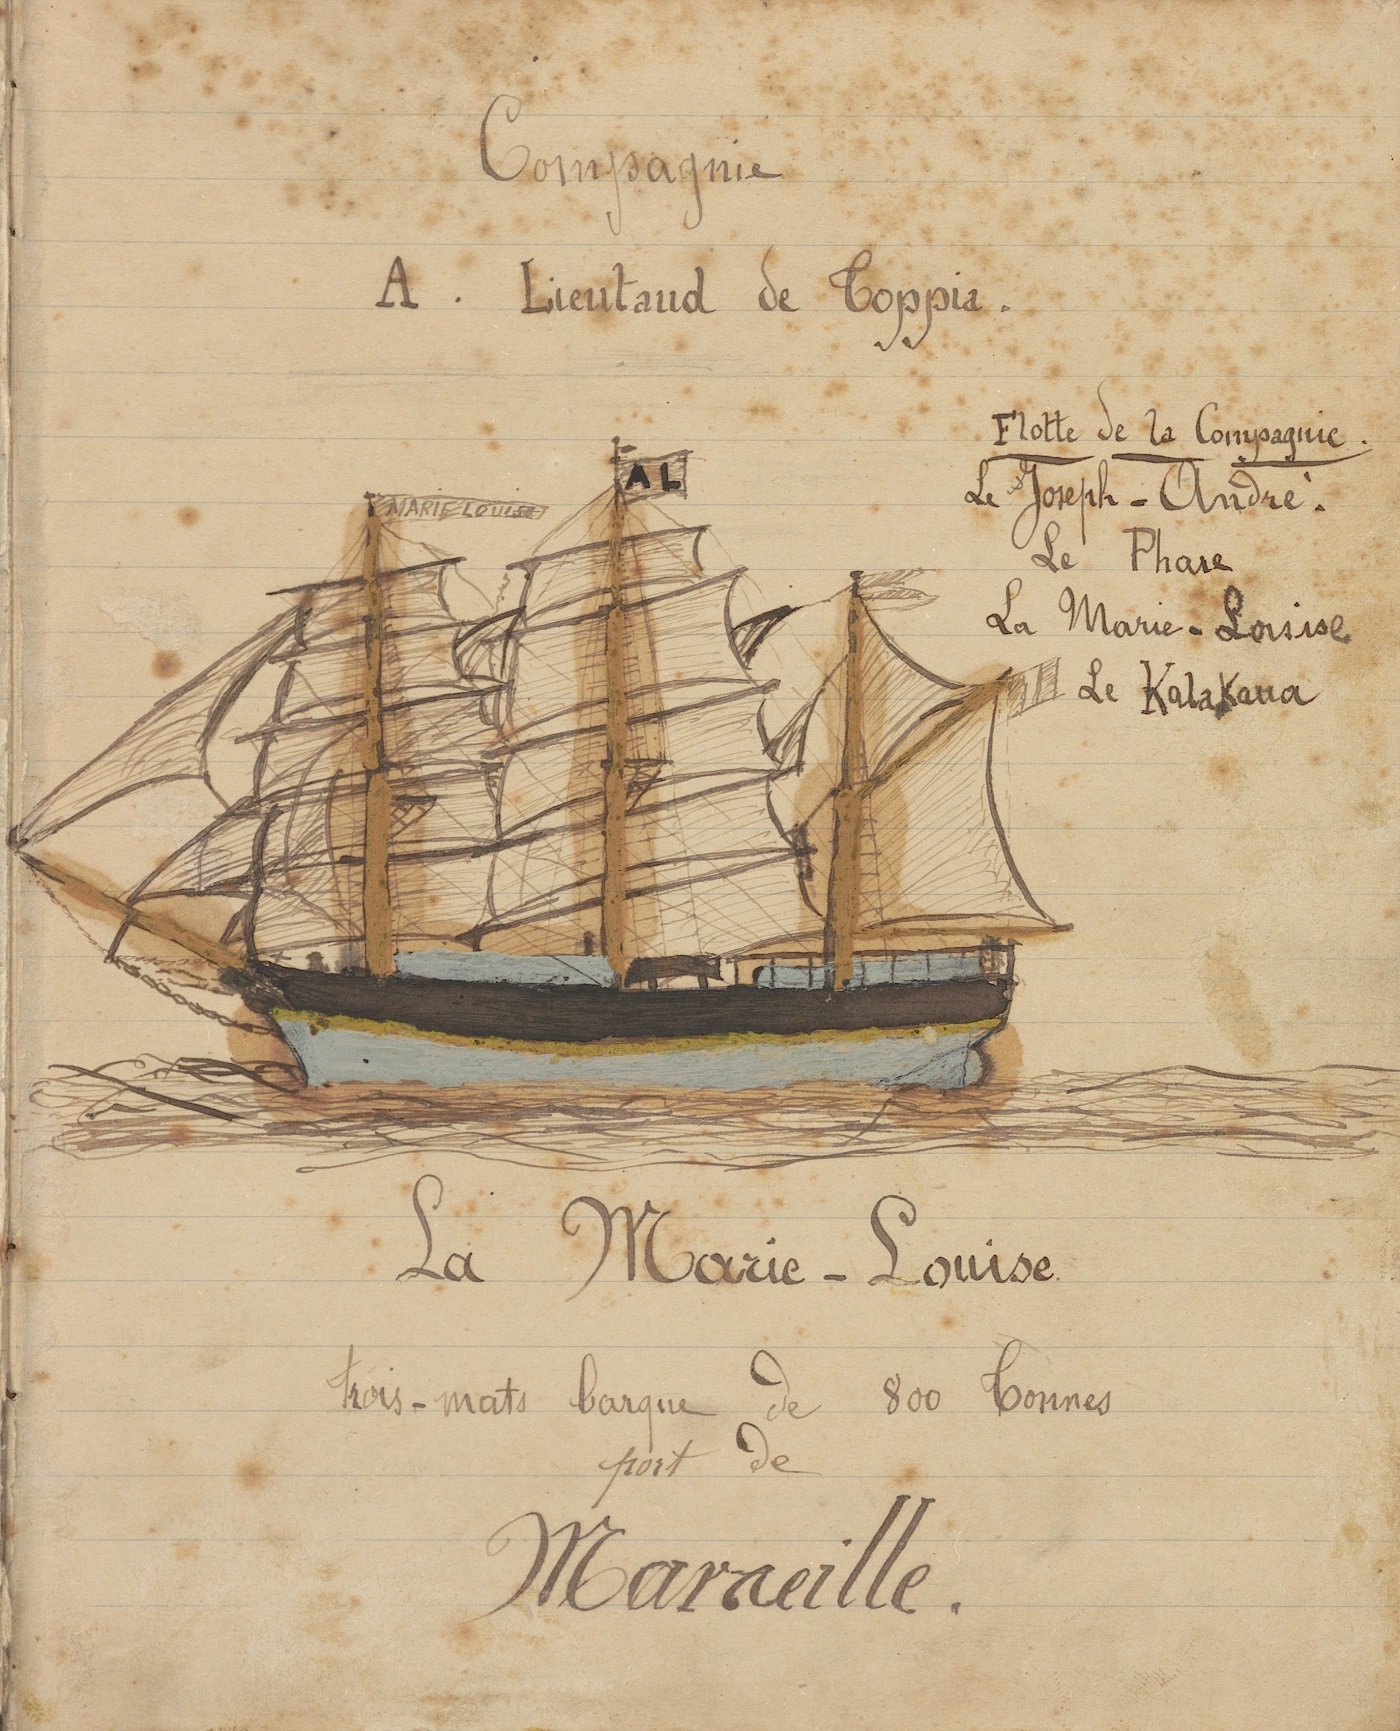 Compagnie
A. Lieutaud de Toppia.
Flotte de la Compagnie.
Le Joseph-André.
Le Phare
La Marie-Louise
Le Kalakaua
AL
MARIE LOUISE
La Marie-Louise
trois-mats barque de 800 Tonnes
port de
Marseille.